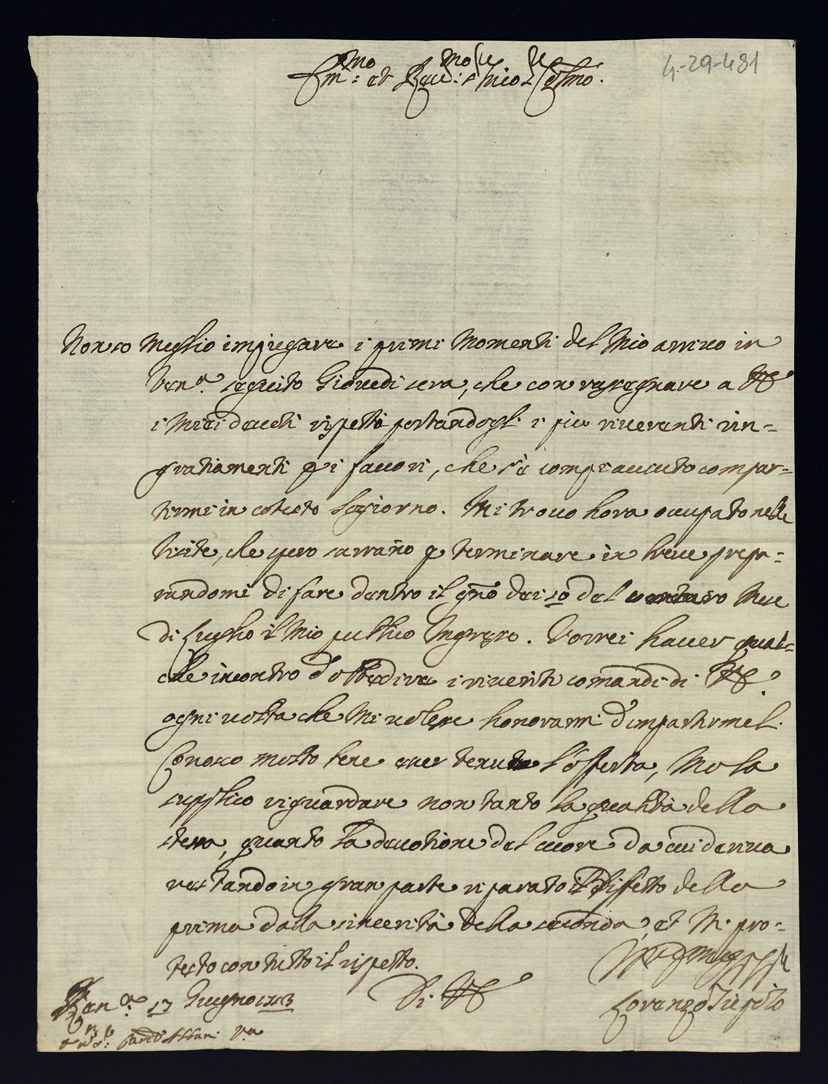 4-29-481
Em.mo et Rev.mo Sig.re mio Sig.re Col.mo
Non so meglio impiegare i primi momenti del mio arrivo in
Ven.a seguito Giovedi sera, che con rassegnare a VE
i miei devoti rispetti portandogli i più riverenti rin-
gratiamenti p i favori, che s'è compiacciuto compar-
tirmi in cotesto Sogiorno. Mi trovo hora occupato nelle
visite, che spero sarrano p terminare in breve prepa-
randomi di fare dentro il gno dei 10 del Mese
di Luglio il mio publico Ingresso. Vorrei haver qual-
che incontro d'obbedire i riveriti comandi di VE
ogni volta che mi volesse honorarmi d'impartirmeli.
Conosco molto bene esser tenue l'offerta, Ma la
supplico riguardare non tanto la qualità della
stessa, quanto la devotione del cuore da cui deriva
restando in gran parte riparato il Diffetto della
prima dalla sincerità della seconda, et Mi pro-
testo con tutto il rispetto.
Di VE
Ven.a 17 Giugno 1713
Lorenzo Tiepolo
Card Albani